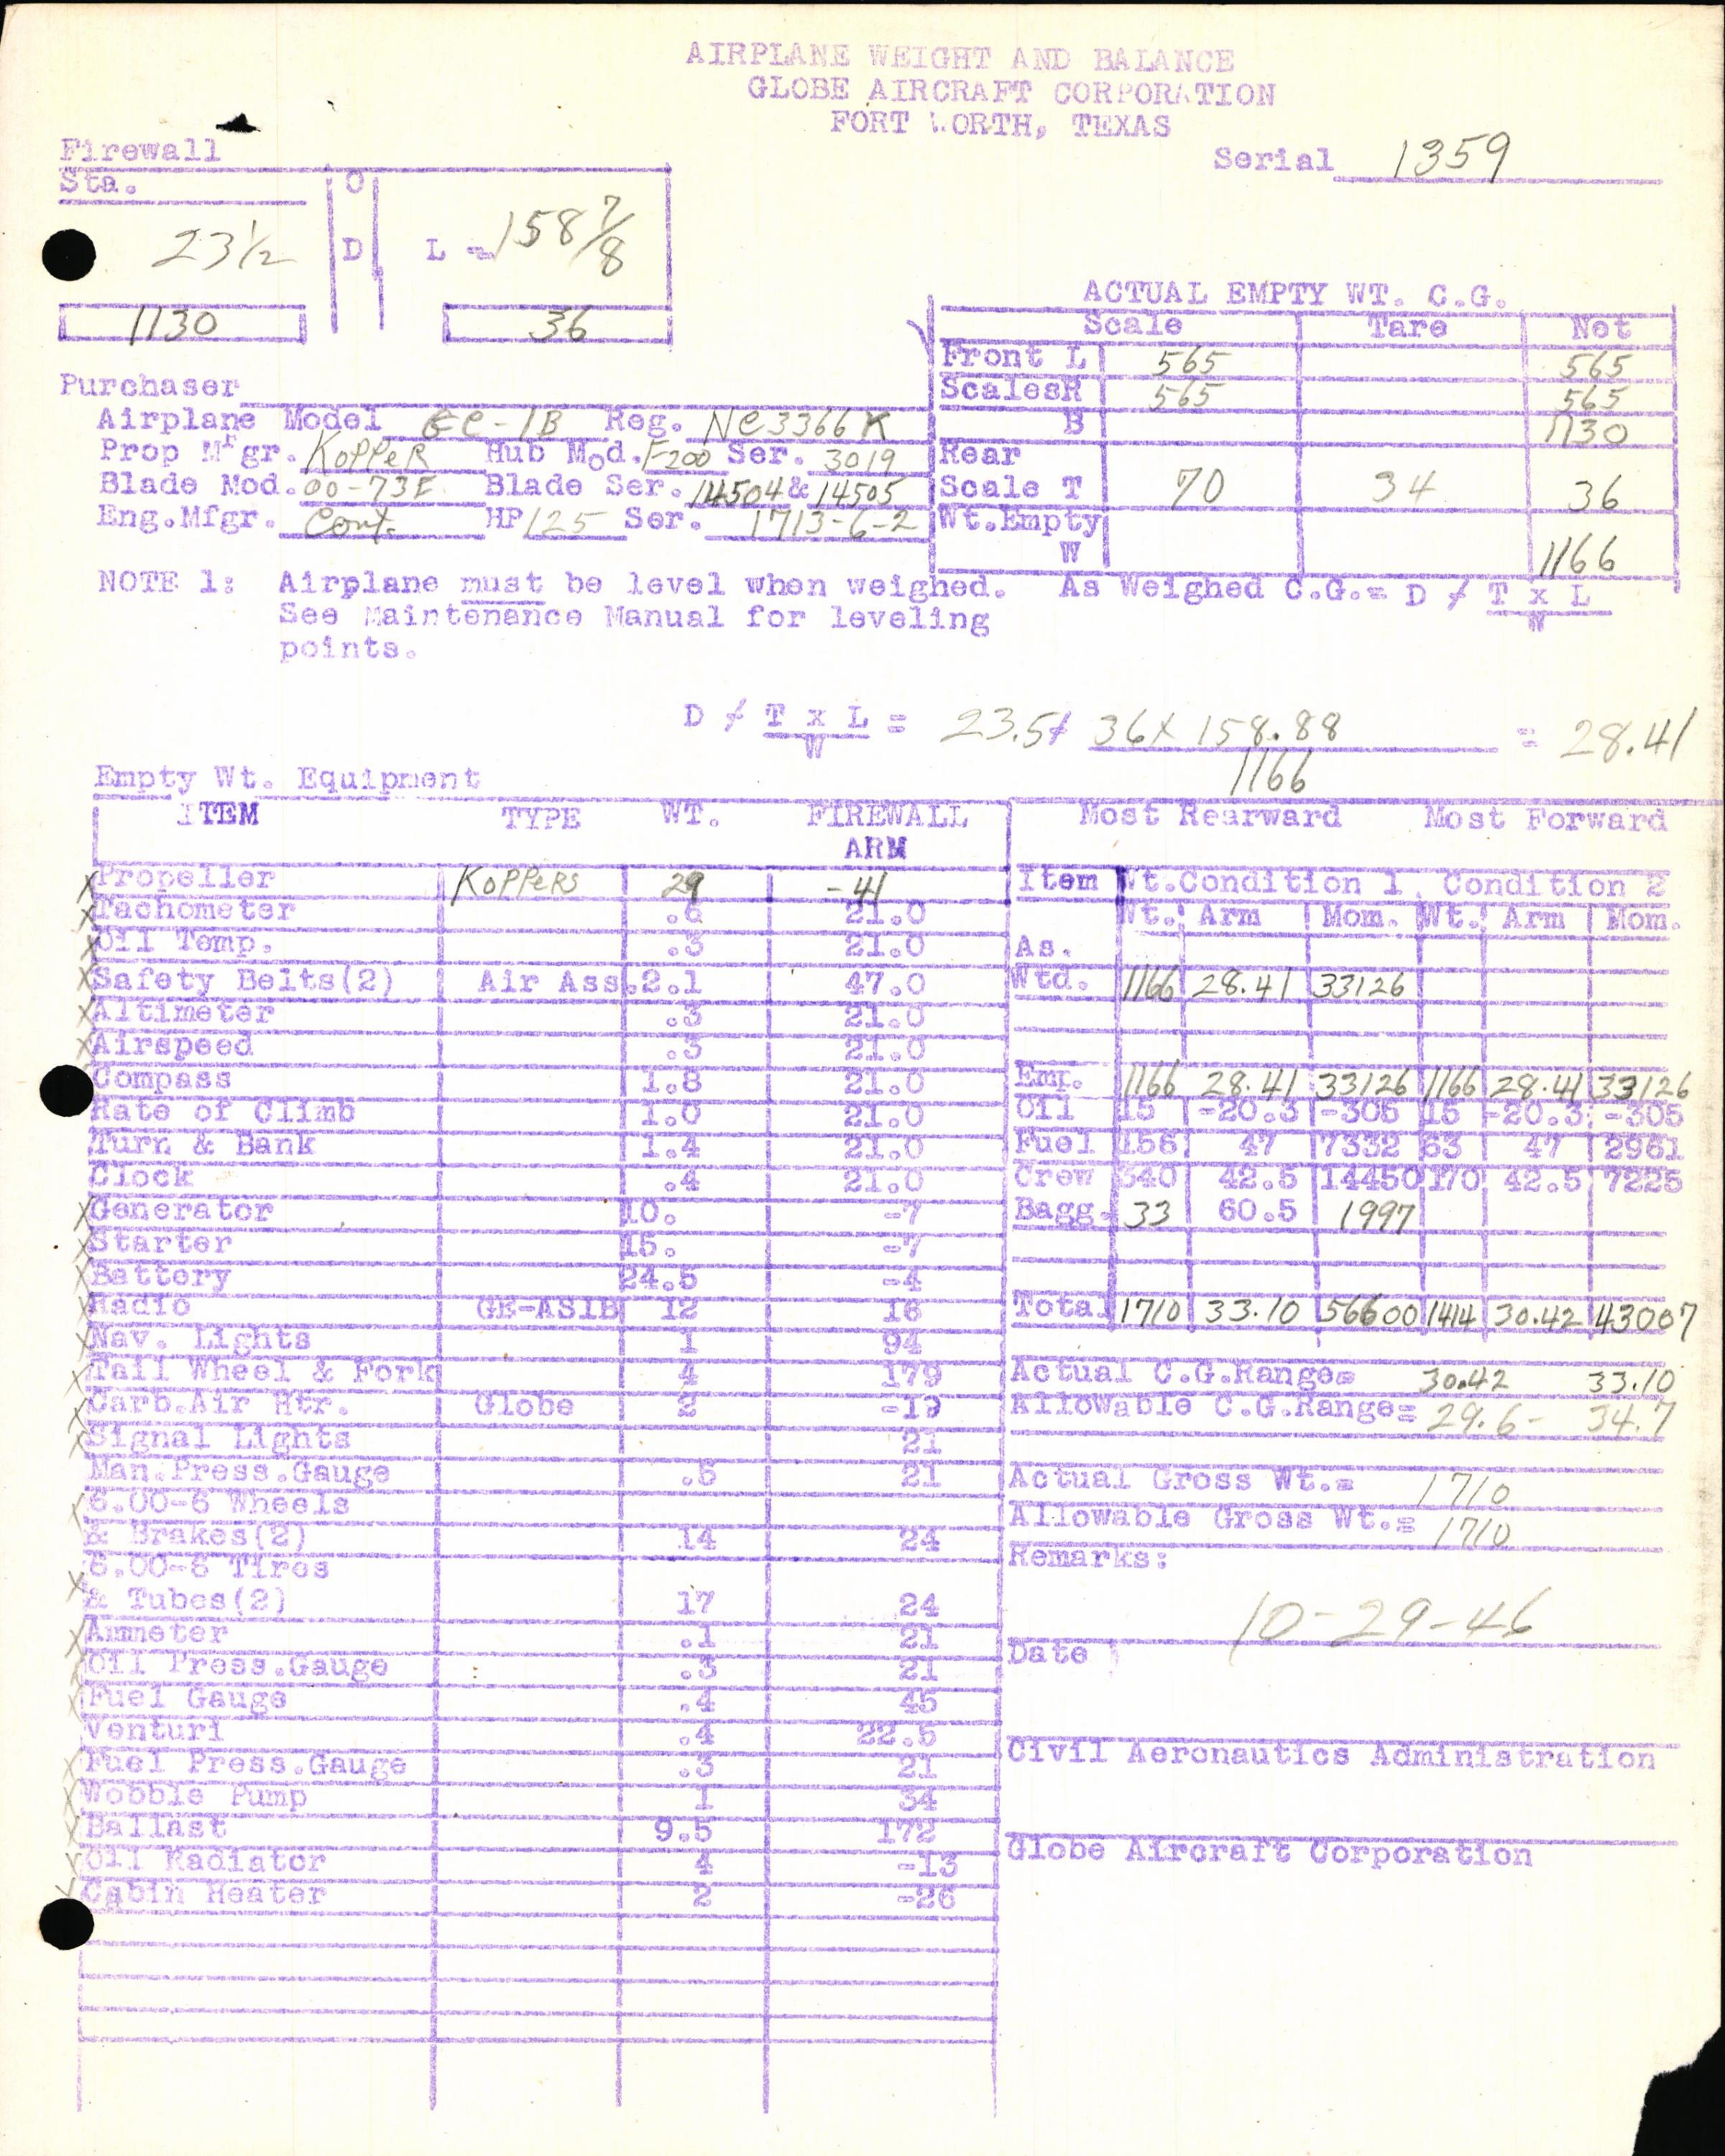 AIRPLANE WEIGHT AND BALANCE
GLOBE AIRCRAFT CORPORATION
FORT WORTH, TEXAS
Serial 1359
Firewall
Sta. O
23 1/2 D L = 158 7/8
1130 36
ACTUAL EMPTY WT. C.G.
Scale Tare Net
Front L 565 565
Scales R 565 565
B 1130
Rear
Scale T 70 34 36
Wt.Empty
W 1166
Purchaser
Airplane Model GC-1B Reg. NC3366K
Prop Mfgr. KOPPER Hub Mod. F200 Ser. 3019
Blade Mod. 00-73E Blade Ser. 14504 & 14505
Eng.Mfgr. Cont. HP 125 Ser. 1713-6-2
NOTE 1: Airplane must be level when weighed. As Weighed C.G.= D + T x L
W
See Maintenance Manual for leveling
points.
D + T x L = 23.5 + 36 x 158.88 = 28.41
W 1166
Empty Wt. Equipment
ITEM TYPE WT. FIREWALL
ARM
X Propeller KOPPERS 29 -41
X Tachometer 21.0
X Oil Temp. .3 21.0
X Safety Belts(2) Air Ass. 2.1 47.0
X Altimeter .3 21.0
X Airspeed .3 21.0
X Compass 1.8 21.0
Rate of Climb 1.0 21.0
Turn & Bank 1.4 21.0
Clock .4 21.0
X Generator 10. -7
X Starter 15. -7
X Battery 24.5 -4
X Radio GE-AS1B 12 16
X Nav. Lights 1 94
X Tail Wheel & Fork 4 179
X Carb.Air Htr. Globe 2 -19
X Signal Lights 21
Man.Press.Gauge .5 21
X 6.00-6 Wheels
& Brakes(2) 14 24
X 6.00-6 Tires
& Tubes(2) 17 24
X Ammeter .1 21
X Oil Press.Gauge .3 21
X Fuel Gauge .4 45
Venturi .4 22.5
X Fuel Press.Gauge .3 21
X Wobble Pump 1 34
X Ballast 9.5 172
X Oil Radiator 4 -13
X Cabin Heater 2 -26
Most Rearward Most Forward
Item Wt.Condition 1 Condition 2
Wt. Arm Mom. Wt. Arm Mom.
As.
Wtd. 1166 28.41 33126
Emp. 1166 28.41 33126 1166 28.41 33126
Oil 15 -20.3 -305 15 -20.3 -305
Fuel 156 47 7332 63 47 2961
Crew 340 42.5 14450 170 42.5 7225
Bagg. 33 60.5 1997
Total 1710 33.10 56600 1414 30.42 43007
Actual C.G.Range= 30.42 33.10
Allowable C.G.Range= 29.6 - 34.7
Actual Gross Wt.= 1710
Allowable Gross Wt.= 1710
Remarks:
10-29-46
Date
Civil Aeronautics Administration
Globe Aircraft Corporation